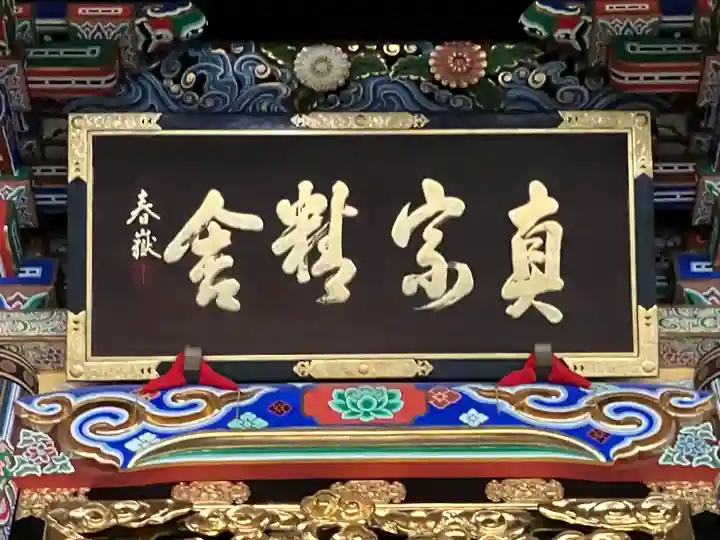 真宗精舎
春嶽